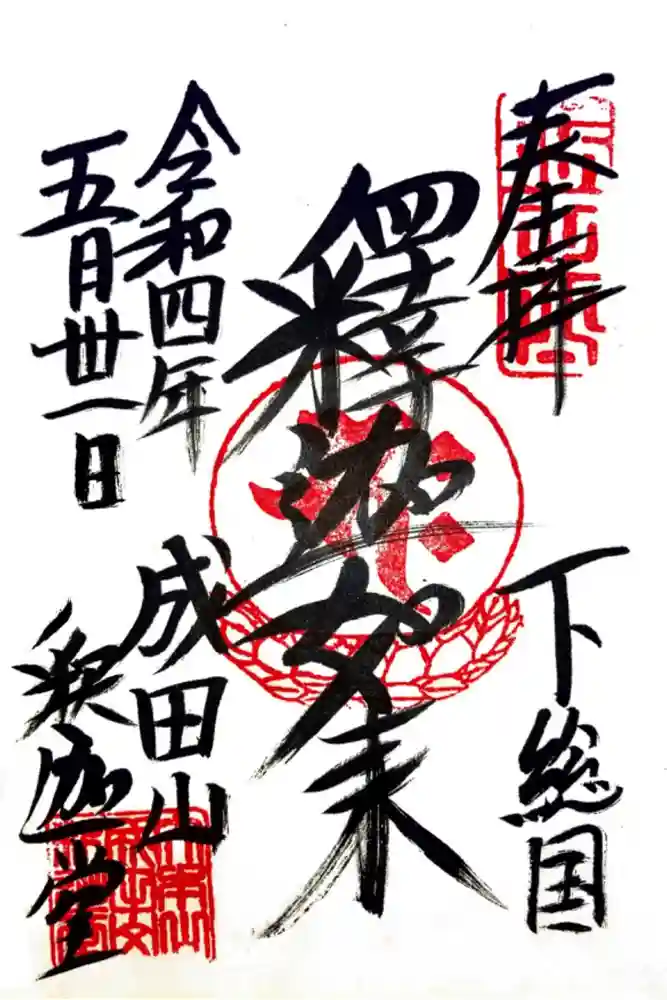 奉拝
下総国
釋迦如来
令和四年
五月卅一日
成田山
釈迦堂